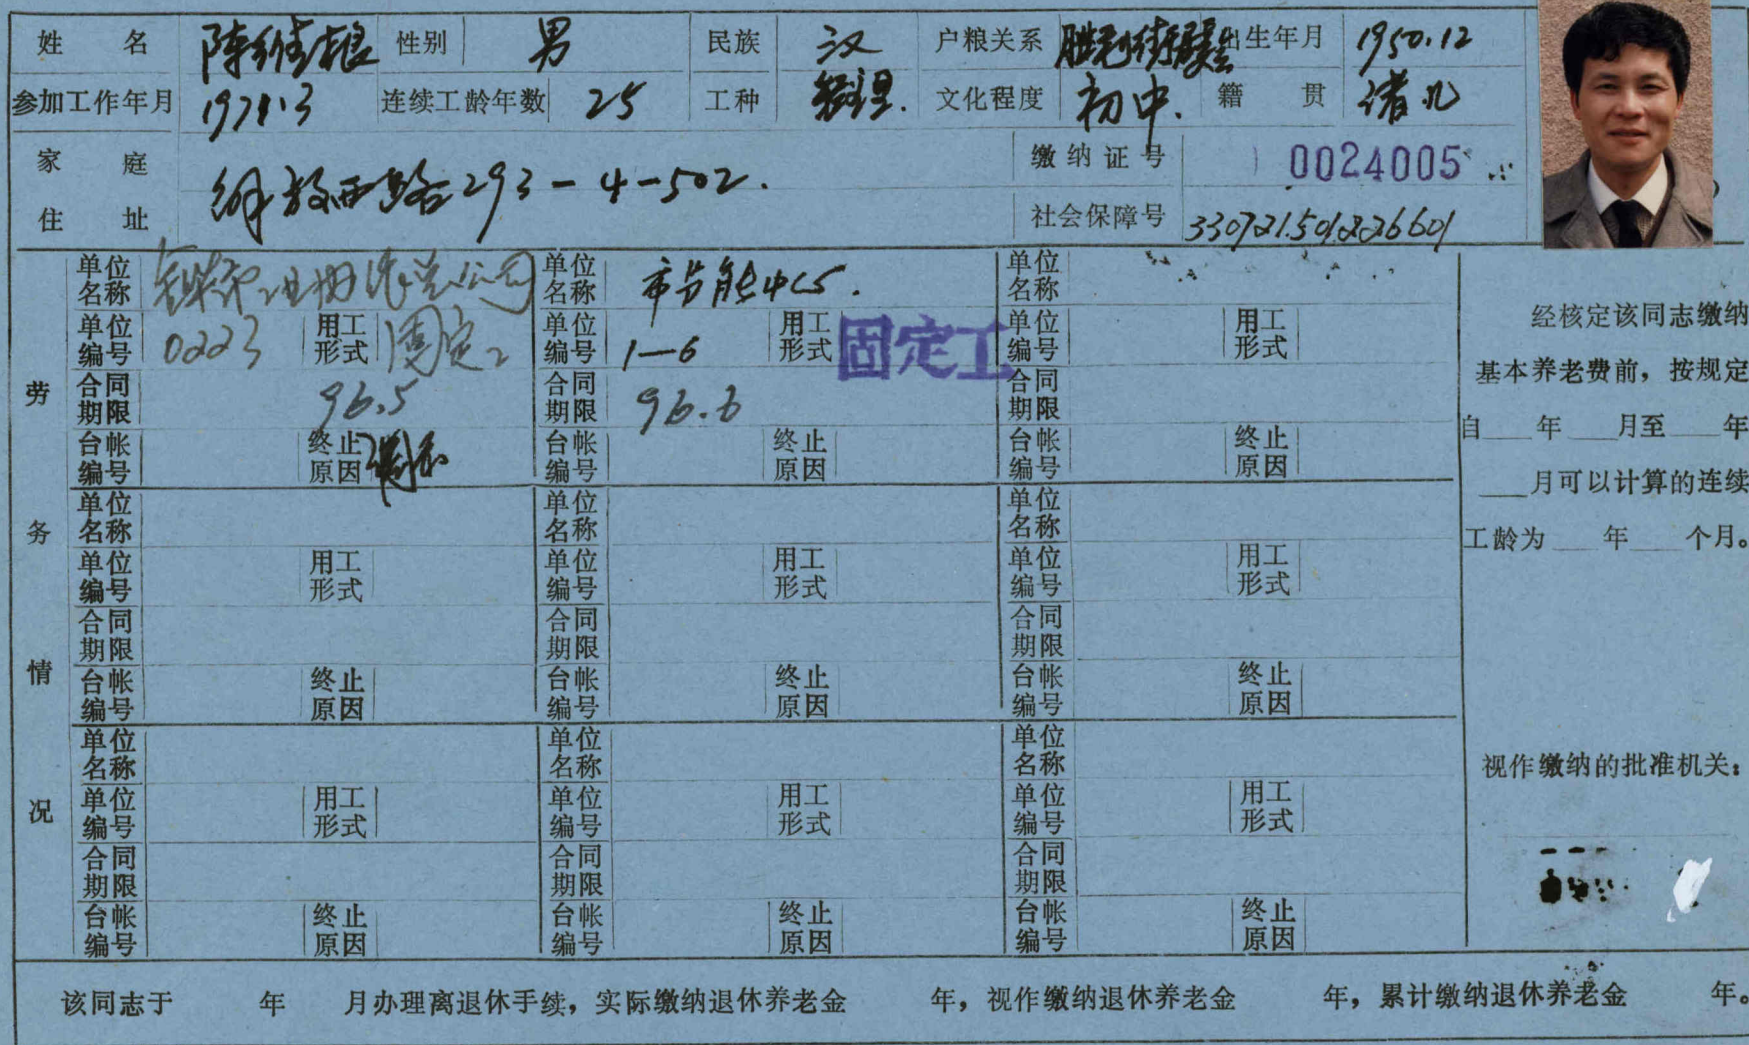 姓名 陈维根 性别 男 民族 汉 户粮关系 出生年月 1950.12
参加工作年月 1971.3 连续工龄年数 25 工种 文化程度 初中. 籍贯
家庭住址 解放西路293-4-502. 缴纳证号 0024005
社会保障号 330721501226601
劳务情况
单位名称 单位名称 市节能中心. 单位名称
单位编号 0223 用工形式 固定工 单位编号 1-6 用工形式 固定工 单位编号 用工形式
合同期限 96.5 合同期限 96.6 合同期限
台帐编号 终止原因 台帐编号 终止原因 台帐编号 终止原因
单位名称 单位名称 单位名称
单位编号 用工形式 单位编号 用工形式 单位编号 用工形式
合同期限 合同期限 合同期限
台帐编号 终止原因 台帐编号 终止原因 台帐编号 终止原因
单位名称 单位名称 单位名称
单位编号 用工形式 单位编号 用工形式 单位编号 用工形式
合同期限 合同期限 合同期限
台帐编号 终止原因 台帐编号 终止原因 台帐编号 终止原因
经核定该同志缴纳
基本养老费前，按规定
自 年 月至 年
月可以计算的连续
工龄为 年 个月。
视作缴纳的批准机关：
该同志于 年 月办理离退休手续，实际缴纳退休养老金 年，视作缴纳退休养老金 年，累计缴纳退休养老金 年。